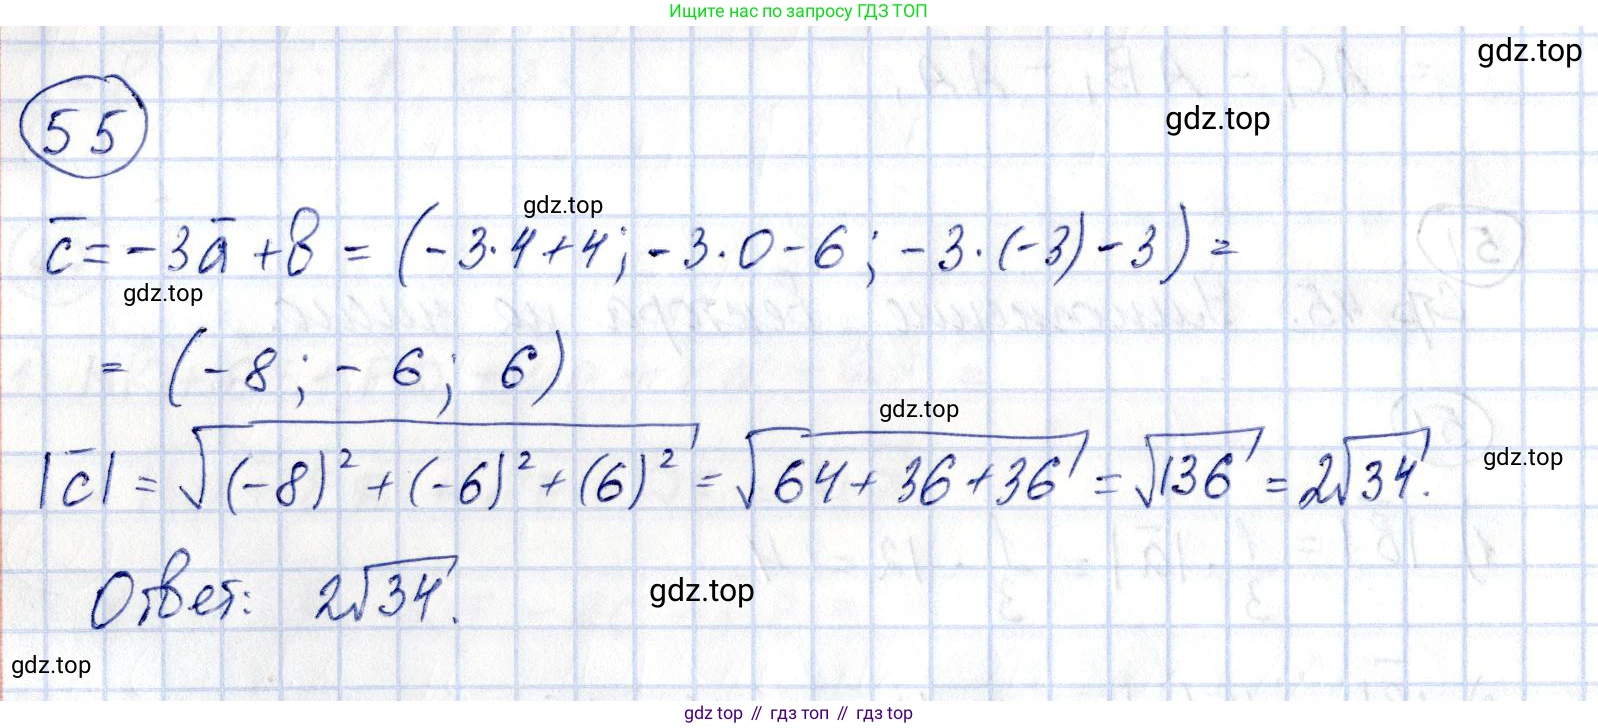 Ищите нас по запросу ГДЗ ТОП
gdz.top
gdz.top
55
gdz.top
c̅ = -3a̅ + b = (-3·4+4; -3·0-6; -3·(-3)-3) =
gdz.top
= (-8; -6; 6)
gdz.top
|c̅| = √((-8)² + (-6)² + (6)²) = √(64+36+36) = √136 = 2√34.
gdz.top
Ответ: 2√34.
gdz.top
gdz.top
gdz top // гдз топ // gdz top